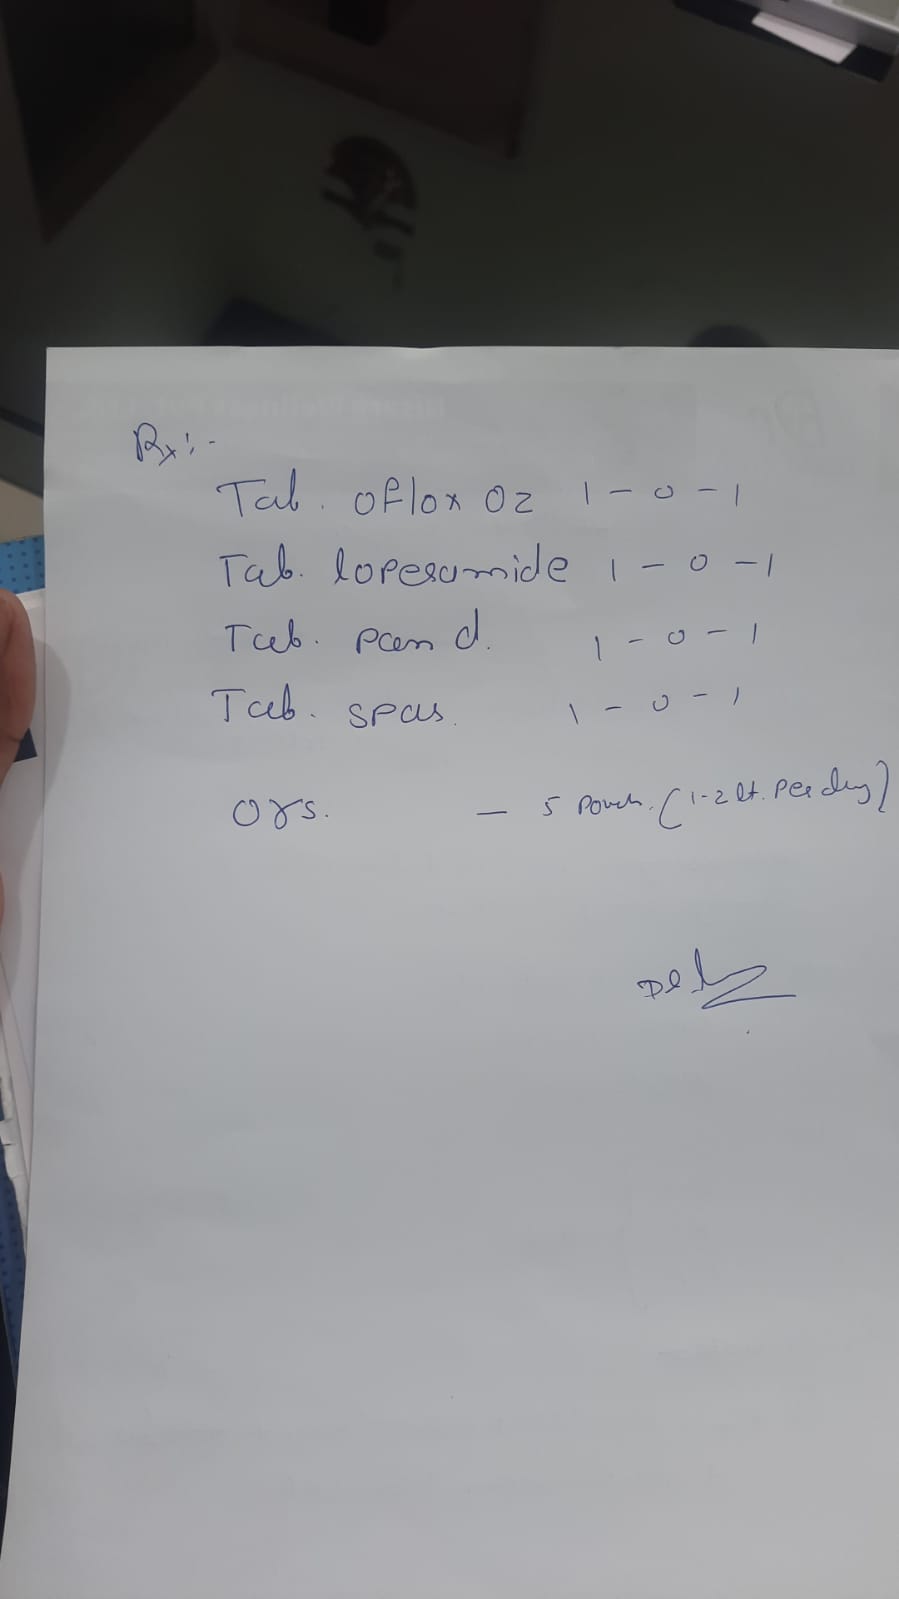 Rx:-
Tab. oflox oz 1 - 0 - 1
Tab. loperamide 1 - 0 - 1
Tab. pan d. 1 - 0 - 1
Tab. spas. 1 - 0 - 1
ors. - 5 Pouch. (1-2 lt. Per day)